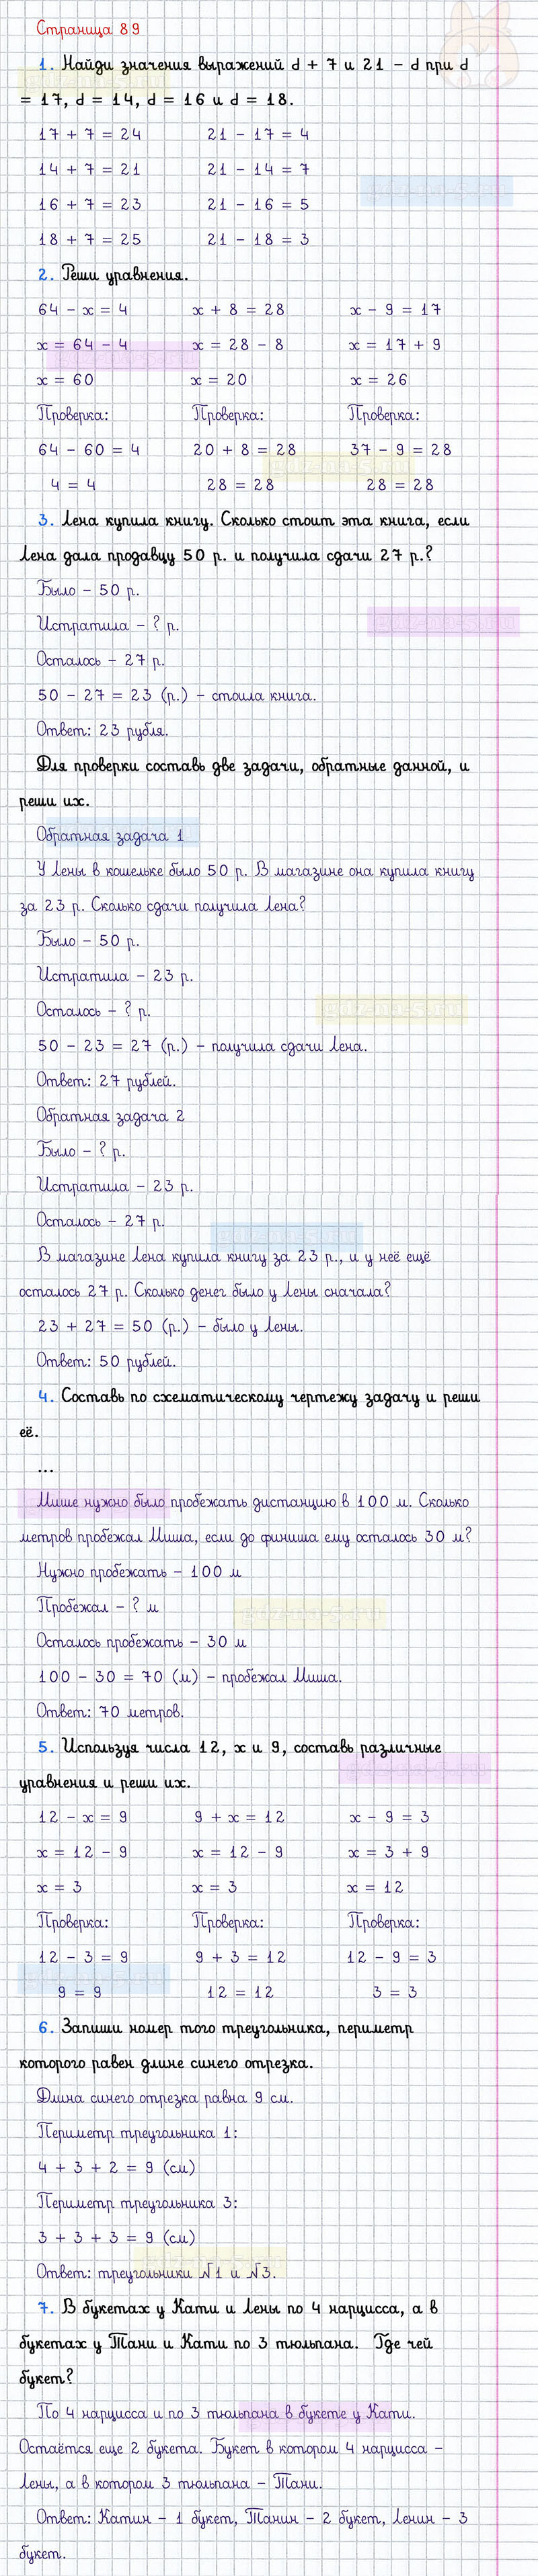 Страница 89
1. Найди значения выражений d + 7 и 21 - d при d
= 17, d = 14, d = 16 и d = 18.
17 + 7 = 24 21 - 17 = 4
14 + 7 = 21 21 - 14 = 7
16 + 7 = 23 21 - 16 = 5
18 + 7 = 25 21 - 18 = 3
2. Реши уравнения.
64 - x = 4 x + 8 = 28 x - 9 = 17
x = 64 - 4 x = 28 - 8 x = 17 + 9
x = 60 x = 20 x = 26
Проверка: Проверка: Проверка:
64 - 60 = 4 20 + 8 = 28 37 - 9 = 28
4 = 4 28 = 28 28 = 28
3. Лена купила книгу. Сколько стоит эта книга, если
Лена дала продавцу 50 р. и получила сдачи 27 р.?
Было – 50 р.
Истратила – ? р.
Осталось – 27 р.
50 - 27 = 23 (р.) – стоила книга.
Ответ: 23 рубля.
Для проверки составь две задачи, обратные данной, и
реши их.
Обратная задача 1
У Лены в кошельке было 50 р. В магазине она купила книгу
за 23 р. Сколько сдачи получила Лена?
Было – 50 р.
Истратила – 23 р.
Осталось – ? р.
50 - 23 = 27 (р.) – получила сдачи Лена.
Ответ: 27 рублей.
Обратная задача 2
Было – ? р.
Истратила – 23 р.
Осталось – 27 р.
В магазине Лена купила книгу за 23 р., и у неё ещё
осталось 27 р. Сколько денег было у Лены сначала?
23 + 27 = 50 (р.) – было у Лены.
Ответ: 50 рублей.
4. Составь по схематическому чертежу задачу и реши
её.
...
Мише нужно было пробежать дистанцию в 100 м. Сколько
метров пробежал Миша, если до финиша ему осталось 30 м?
Нужно пробежать – 100 м
Пробежал – ? м
Осталось пробежать – 30 м
100 - 30 = 70 (м) – пробежал Миша.
Ответ: 70 метров.
5. Используя числа 12, x и 9, составь различные
уравнения и реши их.
12 - x = 9 9 + x = 12 x - 9 = 3
x = 12 - 9 x = 12 - 9 x = 3 + 9
x = 3 x = 3 x = 12
Проверка: Проверка: Проверка:
12 - 3 = 9 9 + 3 = 12 12 - 9 = 3
9 = 9 12 = 12 3 = 3
6. Запиши номер того треугольника, периметр
которого равен длине синего отрезка.
Длина синего отрезка равна 9 см.
Периметр треугольника 1:
4 + 3 + 2 = 9 (см)
Периметр треугольника 3:
3 + 3 + 3 = 9 (см)
Ответ: треугольники №1 и №3.
7. В букетах у Кати и Лены по 4 нарцисса, а в
букетах у Тани и Кати по 3 тюльпана. Где чей
букет?
По 4 нарцисса и по 3 тюльпана в букете у Кати.
Остаётся еще 2 букета. Букет в котором 4 нарцисса –
Лены, а в котором 3 тюльпана – Тани.
Ответ: Катин – 1 букет, Танин – 2 букет, Ленин – 3
букет.